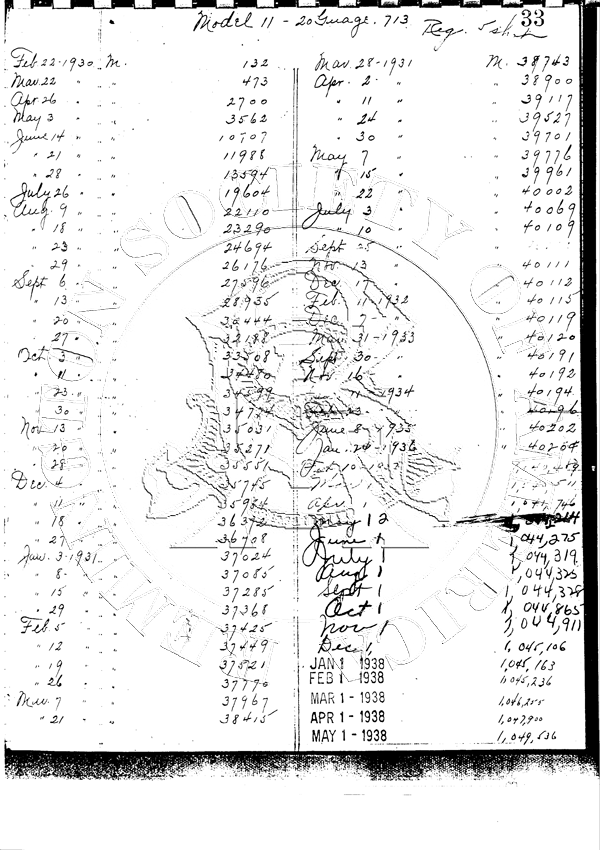 Model 11 - 20 Guage. 713
Reg. 5 shot
33
Feb 22-1930 M. 132
Mar. 22 " " 473
Apr. 26 " " 2700
May 3 " " 3562
June 14 " " 10707
" 21 " " 11988
" 28 " " 13594
July 26 " " 19604
Aug. 9 " " 22110
" 18 " " 23290
" 23 " " 24694
" 29 " " 26176
Sept 6 " " 27596
" 13 " " 28935
" 20 " " 30444
" 27 " " 32188
Oct 3 " " 33508
" 11 " " 34480
" 23 " " 34599
" 30 " " 34774
Nov. 13 " " 35031
" 20 " " 35271
" 28 " " 35551
Dec. 4 " " 35745
" 11 " " 35984
" 18 " " 36372
" 27 " " 36708
Jan. 3-1931 " 37024
" 8 " " 37085
" 15 " " 37285
" 29 " " 37368
Feb. 5 " " 37425
" 12 " " 37449
" 19 " " 37521
" 26 " " 37770
Mar. 7 " " 37967
" 21 " " 38415
Mar 28-1931 M. 38743
Apr. 2 " " 38900
" 11 " " 39117
" 24 " " 39527
" 30 " " 39701
May 7 " " 39776
" 15 " " 39961
" 22 " " 40002
July 3 " " 40069
" 10 " " 40109
Sept 25 "
Nov. 13 " " 40111
Dec. 17 " " 40112
Feb. 11-1932 " 40115
Dec. 7 - " " 40119
Mar. 31-1933 " 40120
Sept 30 " " 40191
Nov 16 " " 40192
11-1934 " 40194
23 40196
June 8-1935 " 40202
Jan. 24-1936 " 40204
Apr 1 1,044,746
May 12
June 1 1,044,275
July 1 1,044,319
Aug 1 1,044,325
Sept 1 1,044,328
Oct 1 1,044,865
Nov 1 1,044,911
Dec 1, 1,045,106
JAN 1 1938 1,045,163
FEB 1 1938 1,045,236
MAR 1 - 1938 1,046,255
APR 1 - 1938 1,047,900
MAY 1 - 1938 1,049,536
REMINGTON SOCIETY OF AMERICA